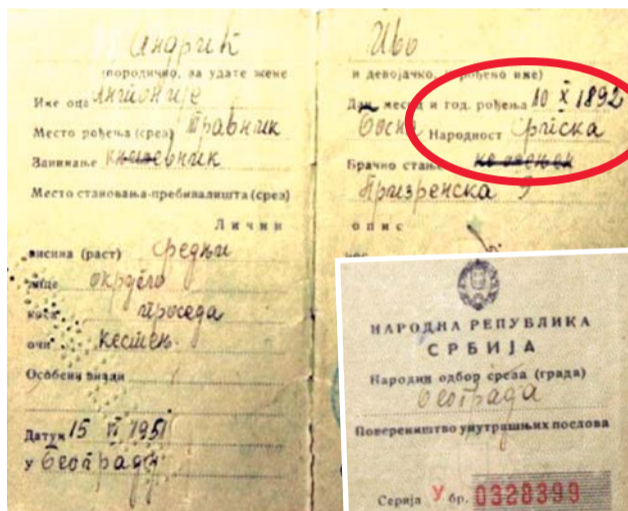 Андрић
(породично, за удате жене
Име оца Антоније
Место рођења (срез) Травник
Занимање књижевник
Место становања-пребивалишта (срез)
Лични
висина (раст) средњи
лице округло
коса проседа
очи кестењ.
Особени знаци
Датум 15 VI 1951
у Београду
Иво
и девојачко, рођено име)
Дан, месец и год. рођења 10 X 1892
Босна Народност Српска
Брачно стање неожењен
Призренска 9
опис
НАРОДНА РЕПУБЛИКА
СРБИЈА
Народни одбор среза (града)
Београда
Повереништво унутрашњих послова
Серија У бр. 0328399